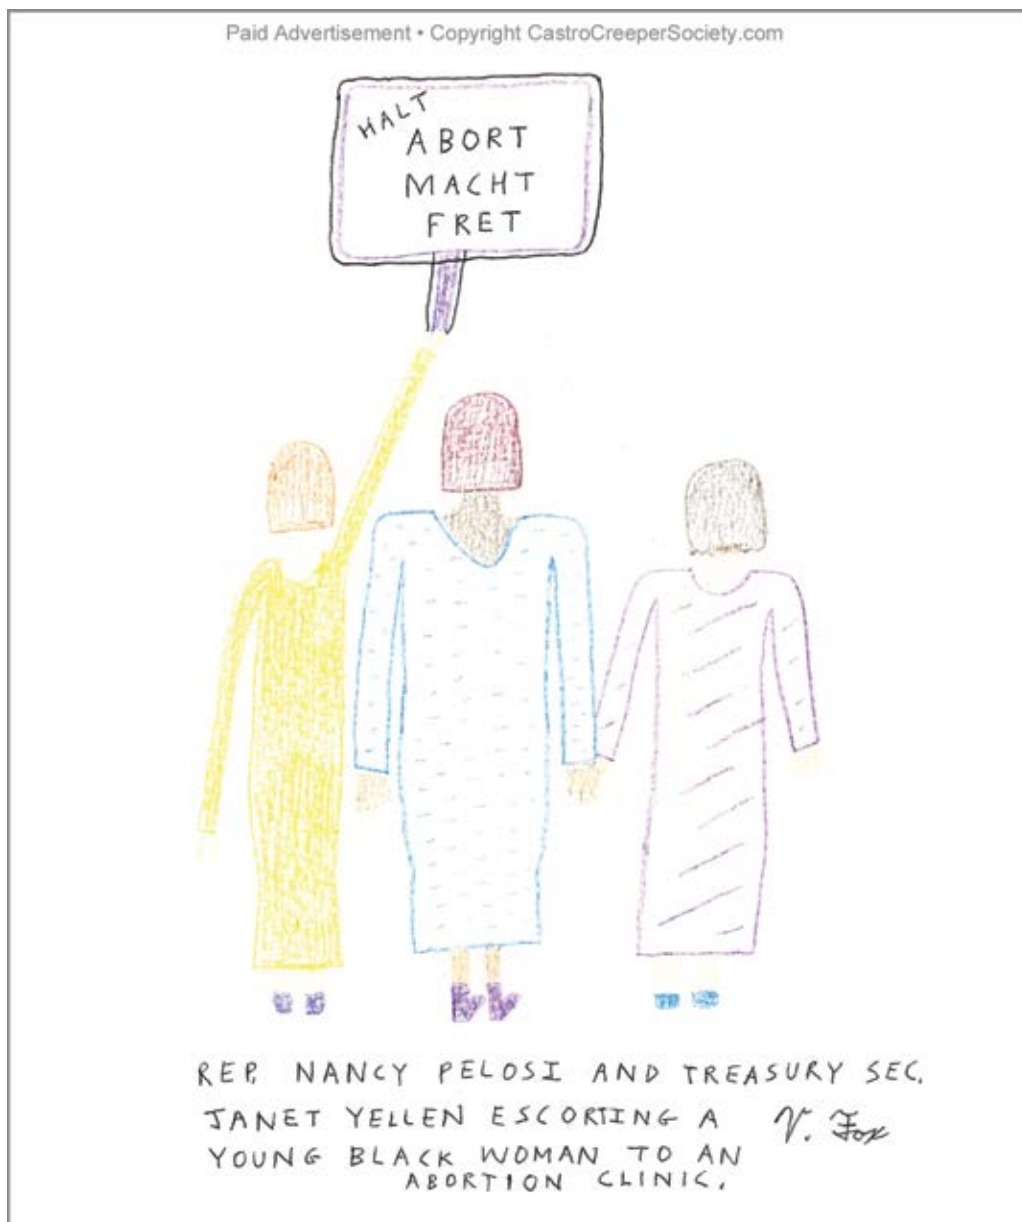 Paid Advertisement • Copyright CastroCreeperSociety.com
HALT
ABORT
MACHT
FRET
REP. NANCY PELOSI AND TREASURY SEC.
JANET YELLEN ESCORTING A
V. Fox
YOUNG BLACK WOMAN TO AN
ABORTION CLINIC.